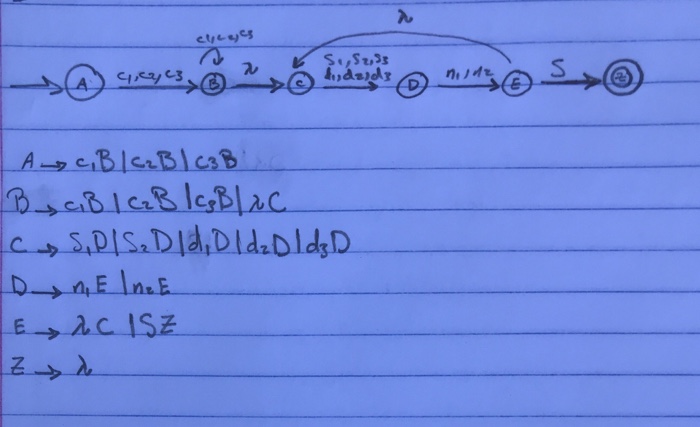 λ
c1,c2,c3
A c1,c2,c3 B λ C S1,S2,S3 D n1,n2 E S Z
d1,d2,d3
A → c1B | c2B | c3B
B → c1B | c2B | c3B | λC
C → S1D | S2D | d1D | d2D | d3D
D → n1E | n2E
E → λC | SZ
Z → λ